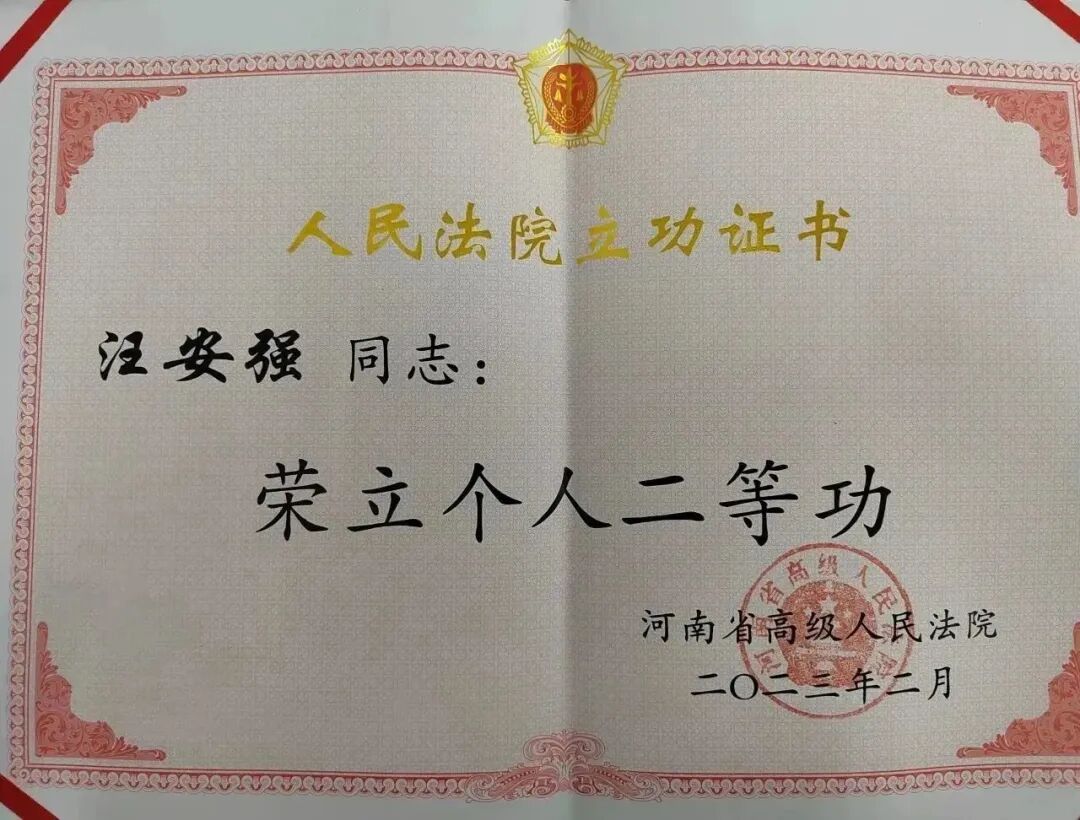 人民法院立功证书
汪安强 同志：
荣立个人二等功
河南省高级人民法院
二〇二三年二月
河南省高级人民法院